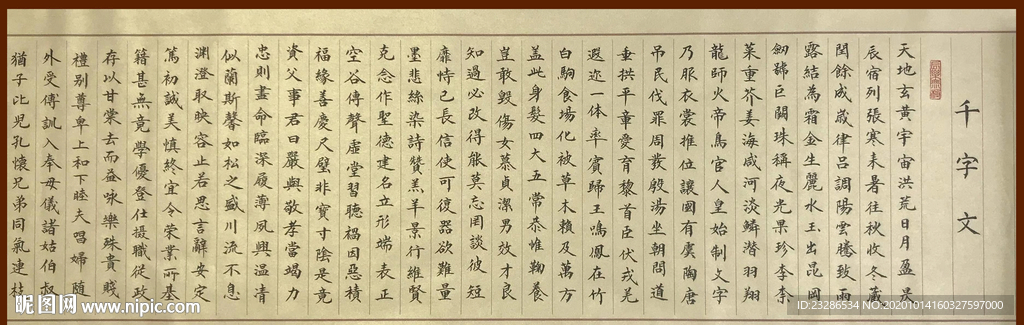 千字文
天地玄黃宇宙洪荒日月盈昃
辰宿列張寒来暑往秋收冬藏
閏餘成歲律呂調陽雲騰致雨
露結為霜金生麗水玉出昆岡
劒號巨闕珠稱夜光果珍李柰
菜重芥姜海咸河淡鱗潛羽翔
龍師火帝鳥官人皇始制文字
乃服衣裳推位讓國有虞陶唐
吊民伐罪周發殷湯坐朝問道
垂拱平章愛育黎首臣伏戎羌
遐迩一体率賓歸王鳴鳳在竹
白駒食場化被草木賴及萬方
盖此身髮四大五常恭惟鞠養
豈敢毀傷女慕貞潔男效才良
知過必改得能莫忘罔談彼短
靡恃己長信使可復器欲難量
墨悲絲染詩贊羔羊景行維賢
克念作聖德建名立形端表正
空谷傳聲虛堂習聽禍因惡積
福緣善慶尺璧非寶寸陰是竟
資父事君曰嚴與敬孝當竭力
忠則盡命臨深履薄夙興温凊
似蘭斯馨如松之盛川流不息
淵澄取映容止若思言辭安定
篤初誠美慎終宜令榮業所基
籍甚無竟學優登仕攝職從政
存以甘棠去而益咏樂殊貴賤
禮别尊卑上和下睦夫唱婦随
外受傅訓入奉母儀諸姑伯叔
猶子比兒孔懷兄弟同氣連枝
昵图网 www.nipic.com
ID:23286534 NO:20201014160327597000